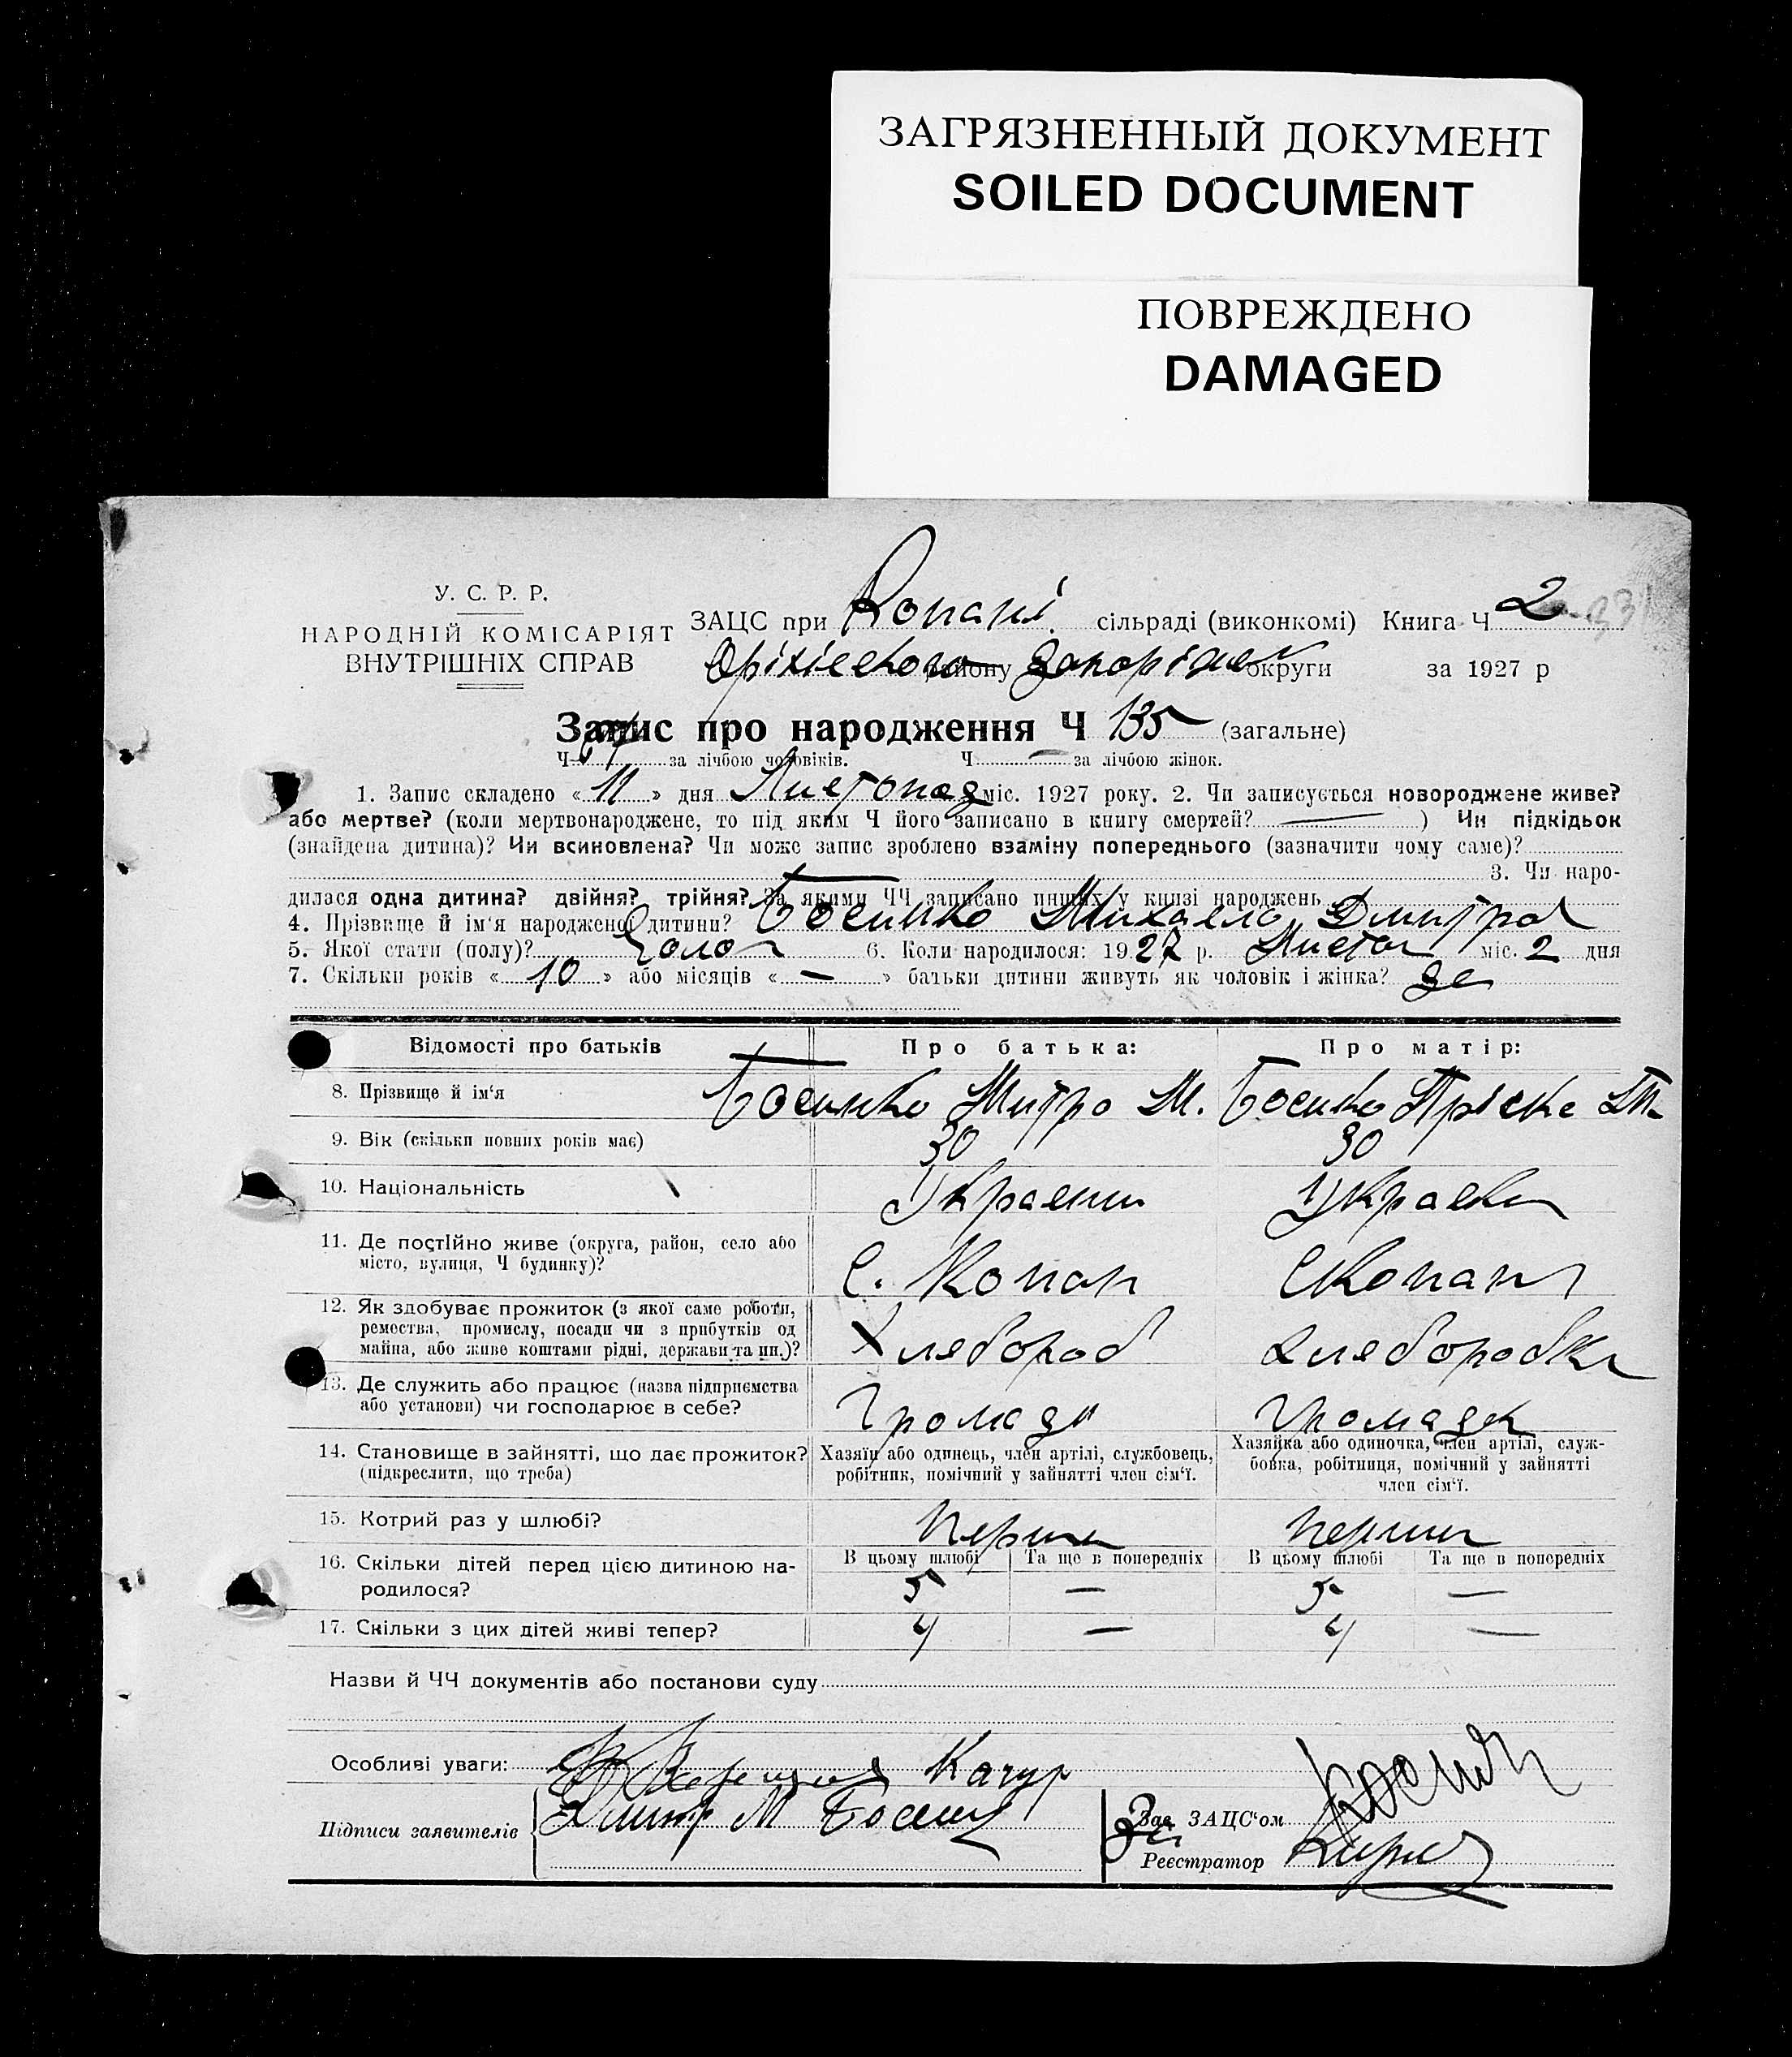 ЗАГРЯЗНЕННЫЙ ДОКУМЕНТ
SOILED DOCUMENT
ПОВРЕЖДЕНО
DAMAGED
У. С. Р. Р.
НАРОДНІЙ КОМІСАРІЯТ
ВНУТРІШНІХ СПРАВ
ЗАЦС при Копані сільраді (виконкомі) Книга Ч 2
Оріхівского району Запоріже округи за 1927 р
Запис про народження Ч 135 (загальне)
Ч 67 за лічбою чоловіків. Ч — за лічбою жінок.
1. Запис складено «11» дня Листопад міс. 1927 року. 2. Чи записується новороджене живе?
або мертве? (коли мертвонароджене, то під яким Ч його записано в книгу смертей? — ) Чи підкідьок
(знайдена дитина)? Чи всиновлена? Чи може запис зроблено взаміну попереднього (зазначити чому саме)?
3. Чи наро-
дилася одна дитина? двійня? трійня? За якими ЧЧ записано инших у книзі народжень
4. Прізвище й ім'я народженої дитини? Босинко Михаело Дмитров
5. Якої стати (полу)? Чолов 6. Коли народилося: 1927 р. Листоп міс. 2 дня
7. Скільки років «10» або місяців «—» батьки дитини живуть як чоловік і жінка? да
Відомості про батьків Про батька: Про матір:
8. Прізвище й ім'я Босинко Митро М. Босинко Пріске
9. Вік (скільки повних років має) 30 30
10. Національність Украинц Украєнк
11. Де постійно живе (округа, район, село або
місто, вулиця, Ч будинку)? С. Копан С Копани
12. Як здобуває прожиток (з якої саме роботи,
ремества, промислу, посади чи з прибутків од
майна, або живе коштами рідні, держави та ин.)? Хлебороб Хлеборобка
13. Де служить або працює (назва підприємства
або установи) чи господарює в себе? Громади Громадск
14. Становище в зайнятті, що дає прожиток?
(підкреслити, що треба)
Хазяїн або одинець, член артілі, службовець,
робітник, помічний у зайнятті член сім'ї.
Хазяйка або одиночка, член артілі, служ-
бовка, робітниця, помічний у зайнятті
член сім'ї.
15. Котрий раз у шлюбі? Перши Перши
В цьому шлюбі Та ще в попередніх В цьому шлюбі Та ще в попередніх
16. Скільки дітей перед цією дитиною на-
родилося? 5 — 5 —
17. Скільки з цих дітей живі тепер? 4 — 4 —
Назви й ЧЧ документів або постанови суду
Особливі уваги: Качур
Підписи заявителів Дмитр М Босин
Зав. ЗАЦС'ом
Реєстратор